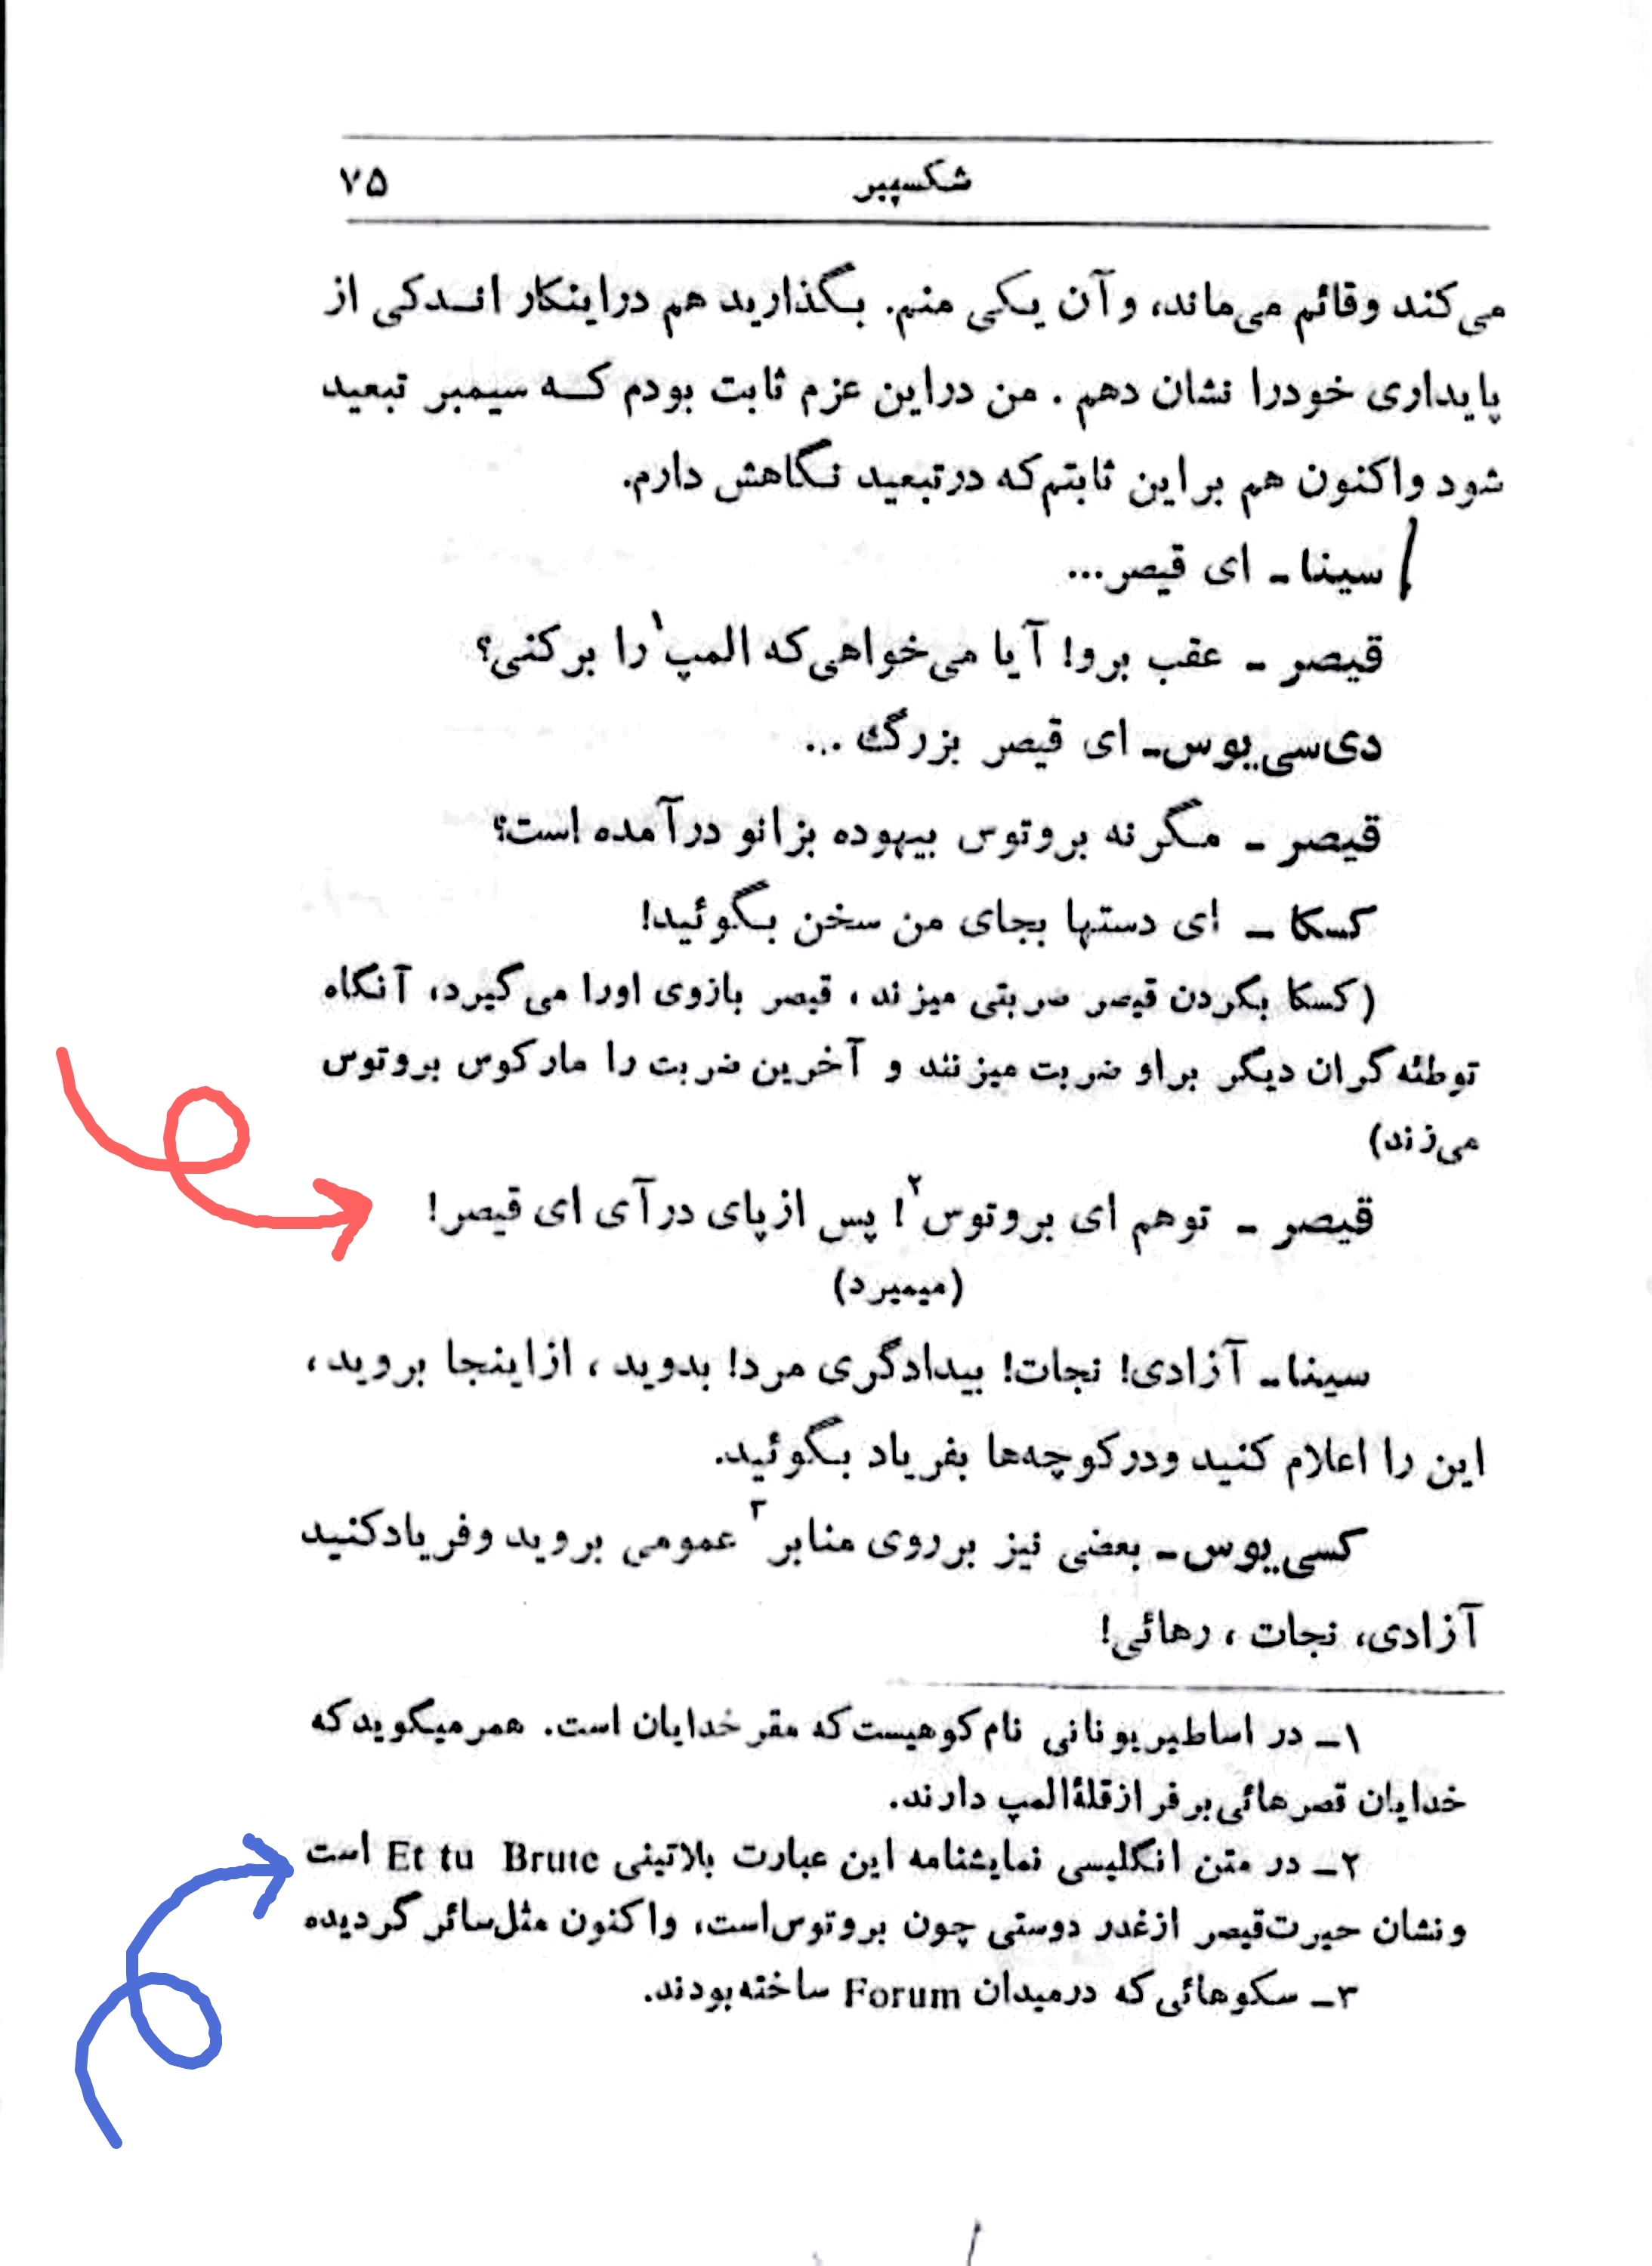 شکسپیر ۷۵
می‌کند وقائم می‌ماند، وآن یکی منم. بگذارید هم دراینکار اندکی از
پایداری خودرا نشان دهم . من دراین عزم ثابت بودم که سیمبر تبعید
شود واکنون هم براین ثابتم‌که درتبعید نگاهش دارم.
سینا ـ ای قیصر...
قیصر ـ عقب برو! آیا می‌خواهی‌که المپ۱ را برکنی؟
دی‌سی‌یوس ـ ای قیصر بزرگ ...
قیصر ـ مگر نه بروتوس بیهوده بزانو درآمده است؟
کسکا ـ ای دستها بجای من سخن بگوئید!
(کسکا بگردن قیصر ضربتی میزند ، قیصر بازوی اورا می‌گیرد، آنگاه
توطئه‌گران دیگر براو ضربت میزنند و آخرین ضربت را مارکوس بروتوس
می‌زند)
قیصر ـ توهم ای بروتوس۲! پس ازپای درآی ای قیصر!
(میمیرد)
سینا ـ آزادی! نجات! بیدادگری مرد! بدوید ، ازاینجا بروید ،
این را اعلام کنید ودرکوچه‌ها بفریاد بگوئید.
کسی‌یوس ـ بعضی نیز برروی منابر۳ عمومی بروید وفریادکنید
آزادی، نجات ، رهائی!
۱ـ در اساطیریونانی نام‌کوهیست‌که مقرخدایان است. همرمیگویدکه
خدایان قصرهائی‌برفرازقلهٔ‌المپ دارند.
۲ـ در متن انگلیسی نمایشنامه این عبارت بلاتینی Et tu Brute است
ونشان حیرت‌قیصر ازغدر دوستی چون بروتوس‌است، واکنون مثل‌سائر گردیده
۳ـ سکوهائی‌که درمیدان Forum ساخته‌بودند.